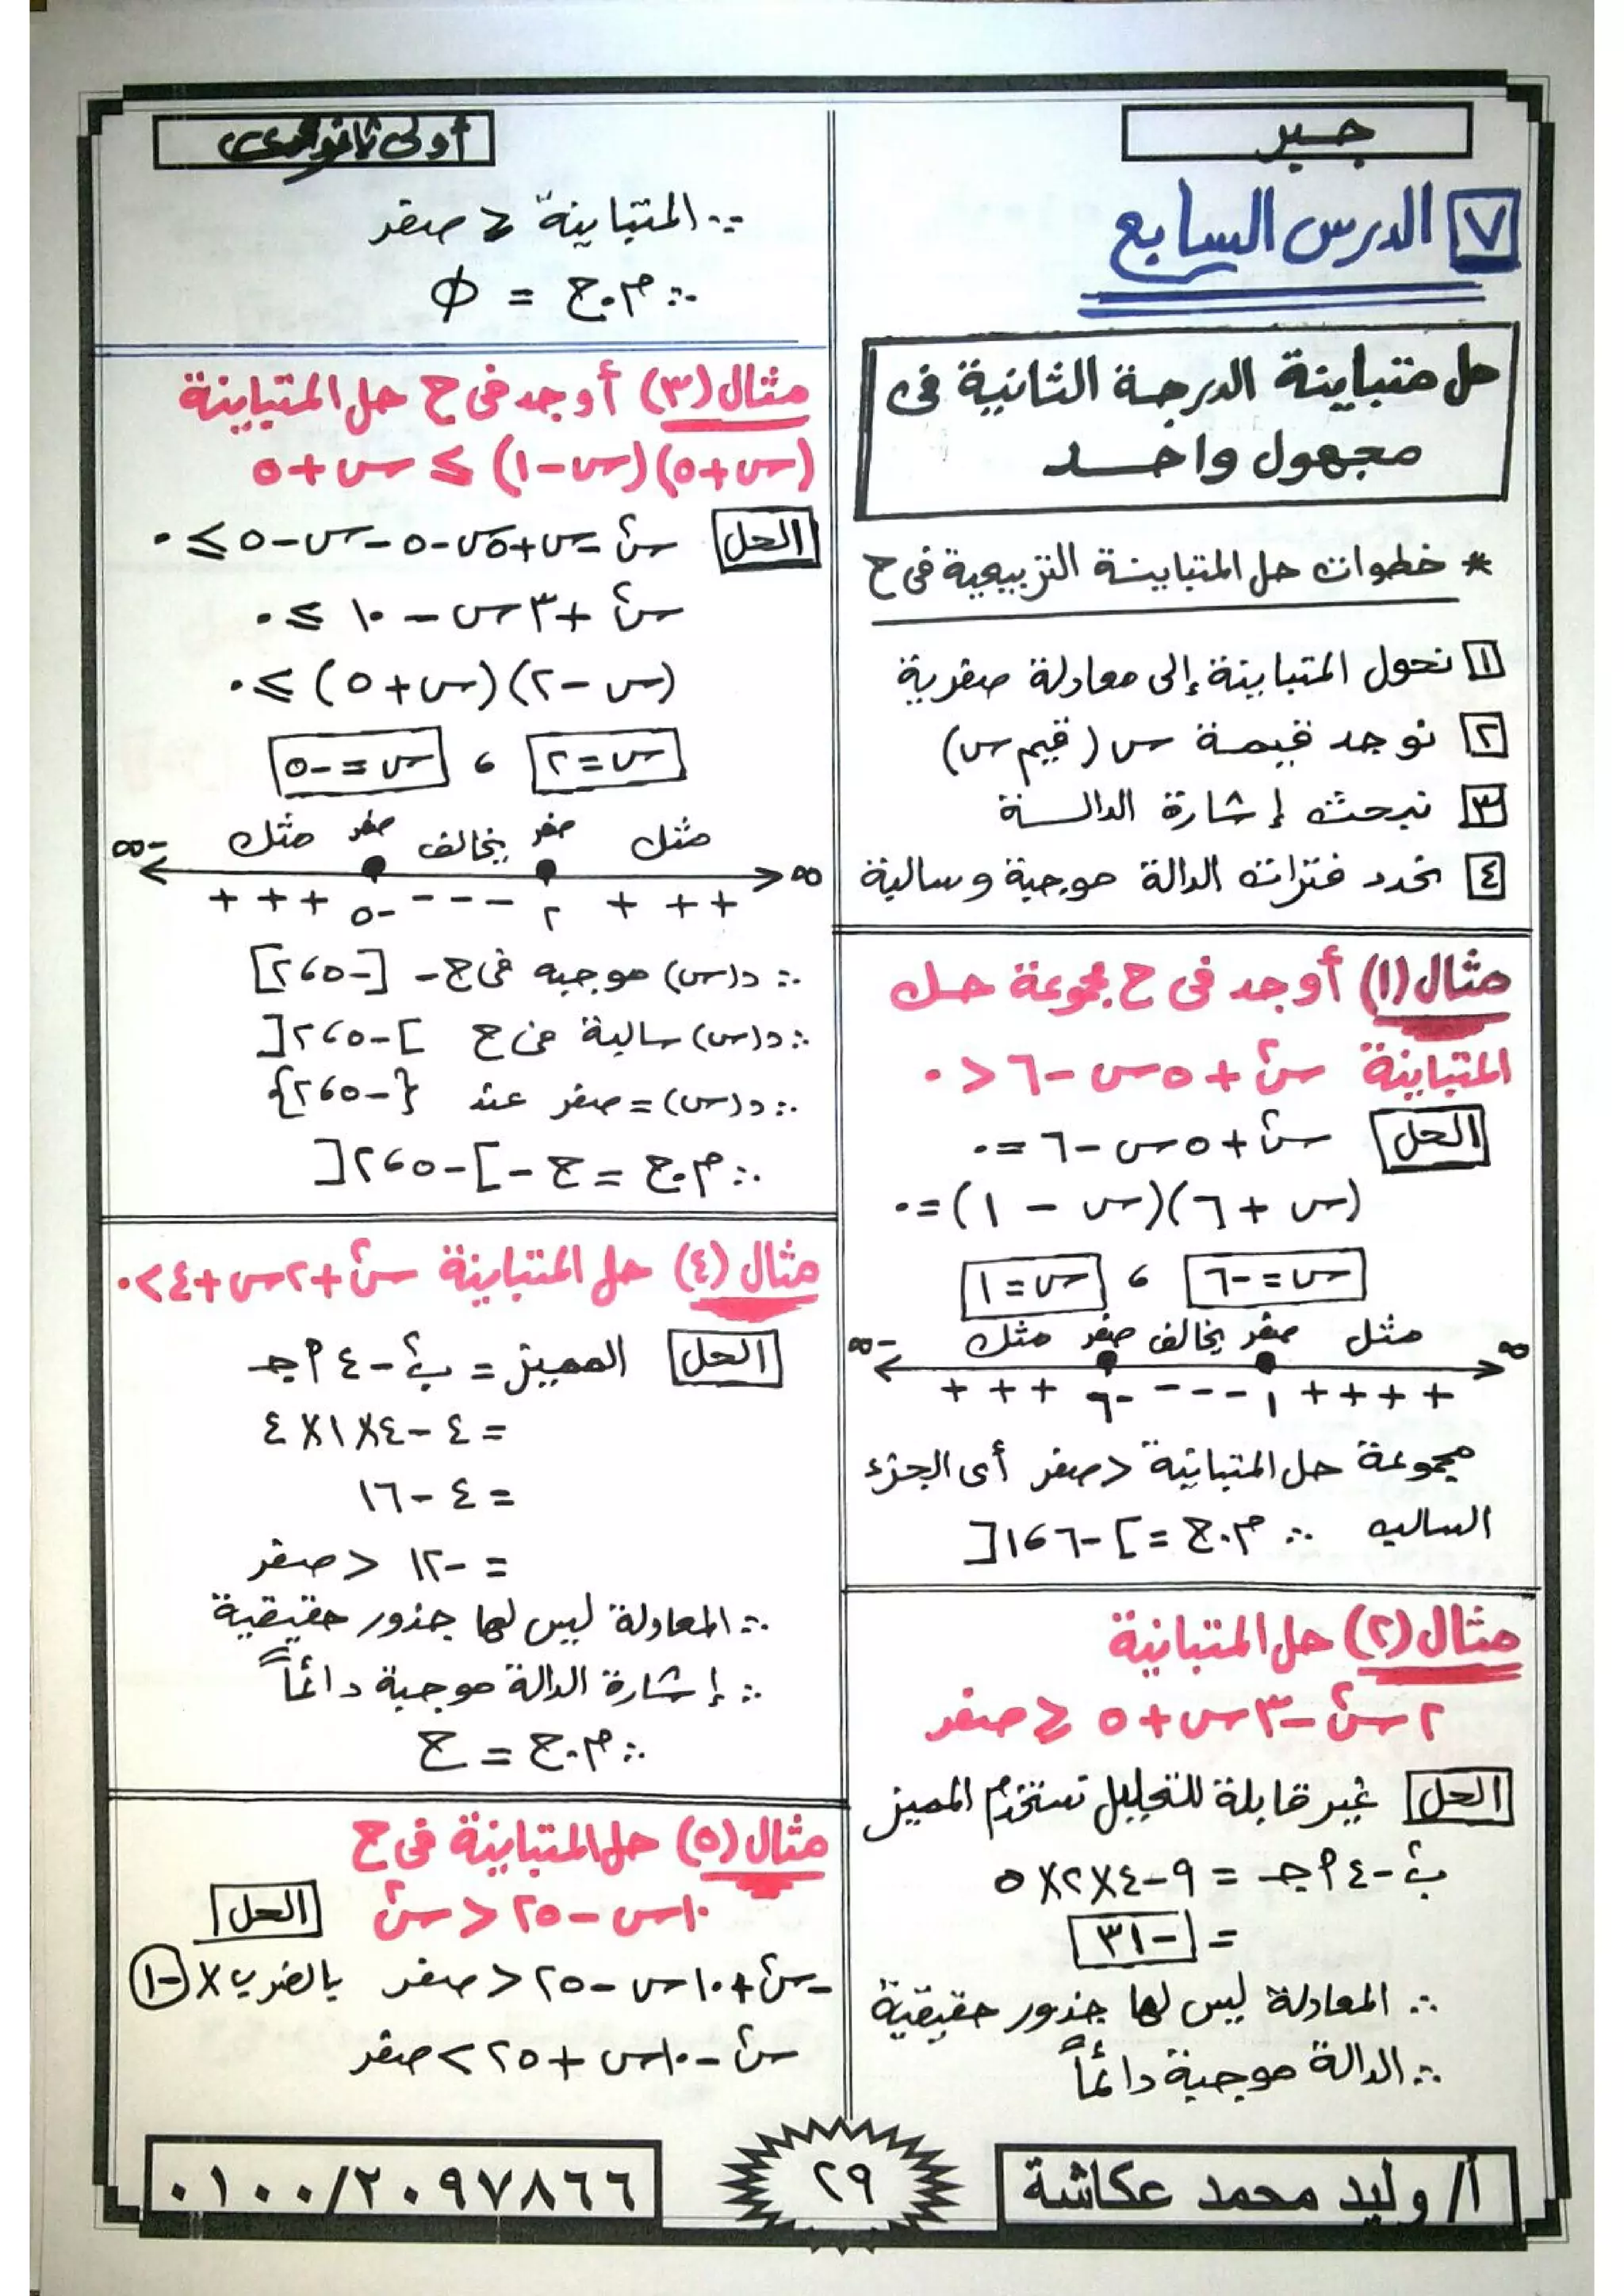 جبر
٧ الدرس السابع
حل متباينة الدرجة الثانية فى
مجهول واحد
* خطوات حل المتباينة التربيعية فى ح
١ نحول المتباينة إلى معادلة صفرية
٢ نوجد قيمة س (قيم س)
٣ نبحث إشارة الدالة
٤ نحدد فترات الدالة موجبة وسالبة
مثال (١) أوجد فى ح مجموعة حل
المتباينة س٢ + ٥س - ٦ < ٠
الحل س٢ + ٥س - ٦ = ٠
(س + ٦)(س - ١) = ٠
س = -٦ ، س = ١
∞ مثل صفر يخالف صفر مثل -∞
+ + + -٦ - - - ١ + + + +
مجموعة حل المتباينة < صفر أى الجزء
السالب ∴ م.ح = ]-٦،١[
مثال (٢) حل المتباينة
٢س٢ - ٣س + ٥ ≤ صفر
الحل غير قابلة للتحليل نستخدم المميز
ب٢ - ٤أجـ = ٩ - ٤×٢×٥
= -٣١
∴ المعادلة ليس لها جذور حقيقية
∴ الدالة موجبة دائماً
أولى ثانوى
∵ المتباينة ≤ صفر
∴ م.ح = φ
مثال (٣) أوجد فى ح حل المتباينة
(س+٥)(س-١) ≥ س+٥
الحل س٢ - س + ٥س - ٥ - س - ٥ ≥ ٠
س٢ + ٣س - ١٠ ≥ ٠
(س - ٢)(س + ٥) ≥ ٠
س = ٢ ، س = -٥
∞ مثل صفر يخالف صفر مثل -∞
+ + + -٥ - - - ٢ + + +
∴ د(س) موجبه فى ح - [-٥،٢]
∴ د(س) سالبة فى ح ]-٥،٢[
∴ د(س) = صفر عند {-٥،٢}
∴ م.ح = ح - ]-٥،٢[
مثال (٤) حل المتباينة س٢ + ٢س + ٤ > ٠
الحل المميز = ب٢ - ٤أجـ
= ٤ - ٤×١×٤
= ٤ - ١٦
= -١٢ < صفر
∴ المعادلة ليس لها جذور حقيقية
∴ إشارة الدالة موجبة دائماً
∴ م.ح = ح
مثال (٥) حل المتباينة فى ح
١٠س - ٢٥ < س٢ الحل
-س٢ + ١٠س - ٢٥ < صفر بالضرب × -١
س٢ - ١٠س + ٢٥ > صفر
أ/ وليد محمد عكاشة
٢٩
٠١٠٠/٢٠٩٧٨٦٦